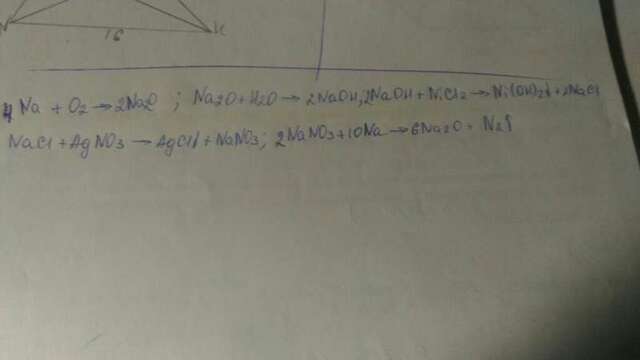 16 K
4Na + O2 → 2Na2O ; Na2O + H2O → 2NaOH; 2NaOH + NiCl2 → Ni(OH)2↓ + 2NaCl
NaCl + AgNO3 → AgCl↓ + NaNO3; 2NaNO3 + 10Na → 6Na2O + N2↑